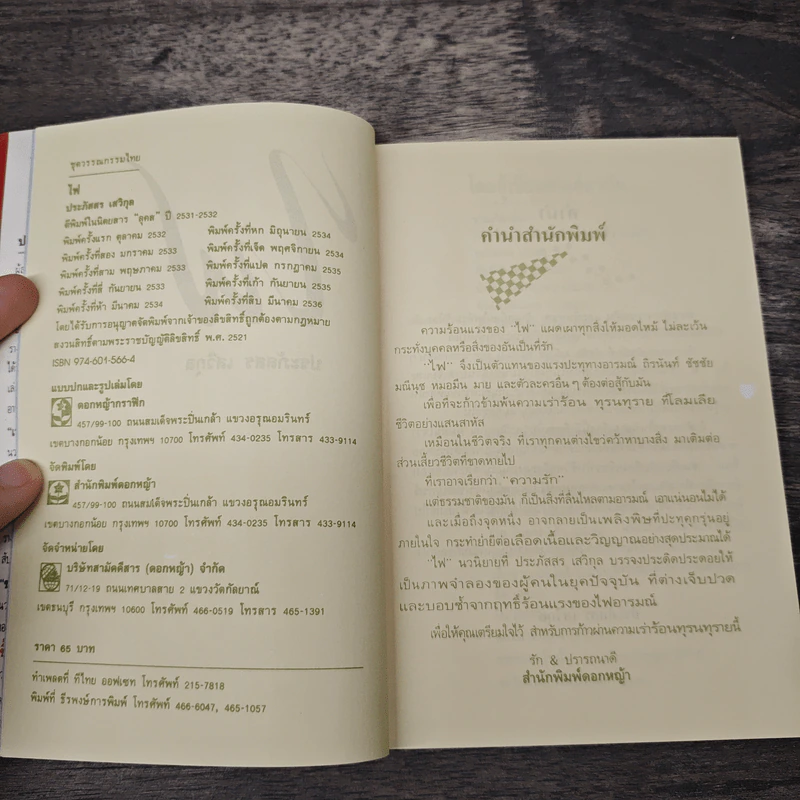 ชุดวรรณกรรมไทย
ไฟ
ประภัสสร เสวิกุล
ตีพิมพ์ในนิตยสาร "ดุคส" ปี 2531-2532
พิมพ์ครั้งแรก ตุลาคม 2532
พิมพ์ครั้งที่สอง มกราคม 2533
พิมพ์ครั้งที่สาม พฤษภาคม 2533
พิมพ์ครั้งที่สี่ กันยายน 2533
พิมพ์ครั้งที่ห้า มีนาคม 2534
พิมพ์ครั้งที่หก มิถุนายน 2534
พิมพ์ครั้งที่เจ็ด พฤศจิกายน 2534
พิมพ์ครั้งที่แปด กรกฎาคม 2535
พิมพ์ครั้งที่เก้า กันยายน 2535
พิมพ์ครั้งที่สิบ มีนาคม 2536
โดยได้รับการอนุญาตจัดพิมพ์จากเจ้าของลิขสิทธิ์ถูกต้องตามกฎหมาย
สงวนลิขสิทธิ์ตามพระราชบัญญัติลิขสิทธิ์ พ.ศ. 2521
ISBN 974-601-566-4
แบบปกและรูปเล่มโดย
ดอกหญ้ากราฟิก
457/99-100 ถนนสมเด็จพระปิ่นเกล้า แขวงอรุณอมรินทร์
เขตบางกอกน้อย กรุงเทพฯ 10700 โทรศัพท์ 434-0235 โทรสาร 433-9114
จัดพิมพ์โดย
สำนักพิมพ์ดอกหญ้า
457/99-100 ถนนสมเด็จพระปิ่นเกล้า แขวงอรุณอมรินทร์
เขตบางกอกน้อย กรุงเทพฯ 10700 โทรศัพท์ 434-0235 โทรสาร 433-9114
จัดจำหน่ายโดย
บริษัทสามัคคีสาร (ดอกหญ้า) จำกัด
71/12-19 ถนนเทศบาลสาย 2 แขวงวัดกัลยาณ์
เขตธนบุรี กรุงเทพฯ 10600 โทรศัพท์ 466-0519 โทรสาร 465-1391
ราคา 65 บาท
ทำเพลตที่ ทีไทย ออฟเซท โทรศัพท์ 215-7818
พิมพ์ที่ ธีรพงษ์การพิมพ์ โทรศัพท์ 466-6047, 465-1057
คำนำสำนักพิมพ์
ความร้อนแรงของ "ไฟ" แผดเผาทุกสิ่งให้มอดไหม้ ไม่ละเว้น
กระทั่งบุคคลหรือสิ่งของอันเป็นที่รัก
"ไฟ" จึงเป็นตัวแทนของแรงปะทุทางอารมณ์ ถิรนันท์ ชัชชัย
มณีนุช หมอมีน มาย และตัวละครอื่นๆ ต้องต่อสู้กับมัน
เพื่อที่จะก้าวข้ามพ้นความเร่าร้อน ทุรนทุราย ที่โลมเลีย
ชีวิตอย่างแสนสาหัส
เหมือนในชีวิตจริง ที่เราทุกคนต่างไขว่คว้าหาบางสิ่ง มาเติมต่อ
ส่วนเสี้ยวชีวิตที่ขาดหายไป
ที่เราอาจเรียกว่า "ความรัก"
แต่ธรรมชาติของมัน ก็เป็นสิ่งที่ลื่นไหลตามอารมณ์ เอาแน่นอนไม่ได้
และเมื่อถึงจุดหนึ่ง อาจกลายเป็นเพลิงพิษที่ปะทุคุกรุ่นอยู่
ภายในใจ กระทำย่ำยีต่อเลือดเนื้อและวิญญาณอย่างสุดประมาณได้
"ไฟ" นวนิยายที่ ประภัสสร เสวิกุล บรรจงประดิดประดอยให้
เป็นภาพจำลองของผู้คนในยุคปัจจุบัน ที่ต่างเจ็บปวด
และบอบช้ำจากฤทธิ์ร้อนแรงของไฟอารมณ์
เพื่อให้คุณเตรียมใจไว้ สำหรับการก้าวผ่านความเร่าร้อนทุรนทุรายนี้
รัก & ปรารถนาดี
สำนักพิมพ์ดอกหญ้า